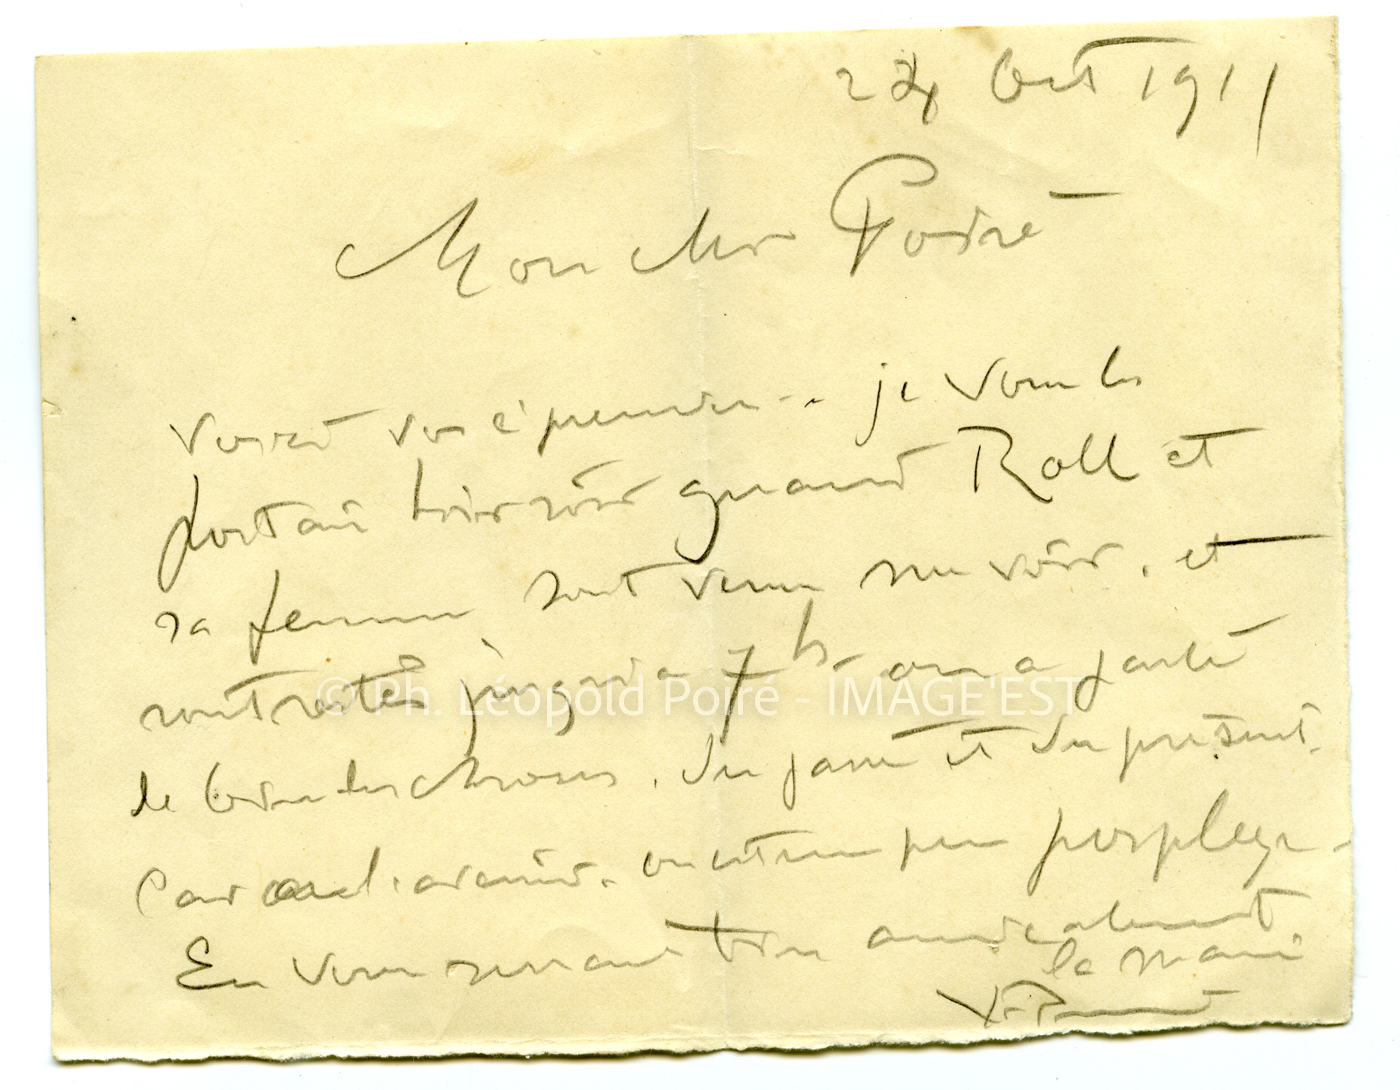 24 Oct 1911
Mon cher Poiré
Voici vos épreuves... je vous les
portais hier soir quand Roll et
sa femme sont venus me voir. et
sont restés jusqu'a 7h - on a parlé
de bien des choses. du passé et du présent.
Car l'avenir. on est un peu perplexe -
En vous serrant bien amicalement
la main
© Ph. Léopold Poiré - IMAGE'EST